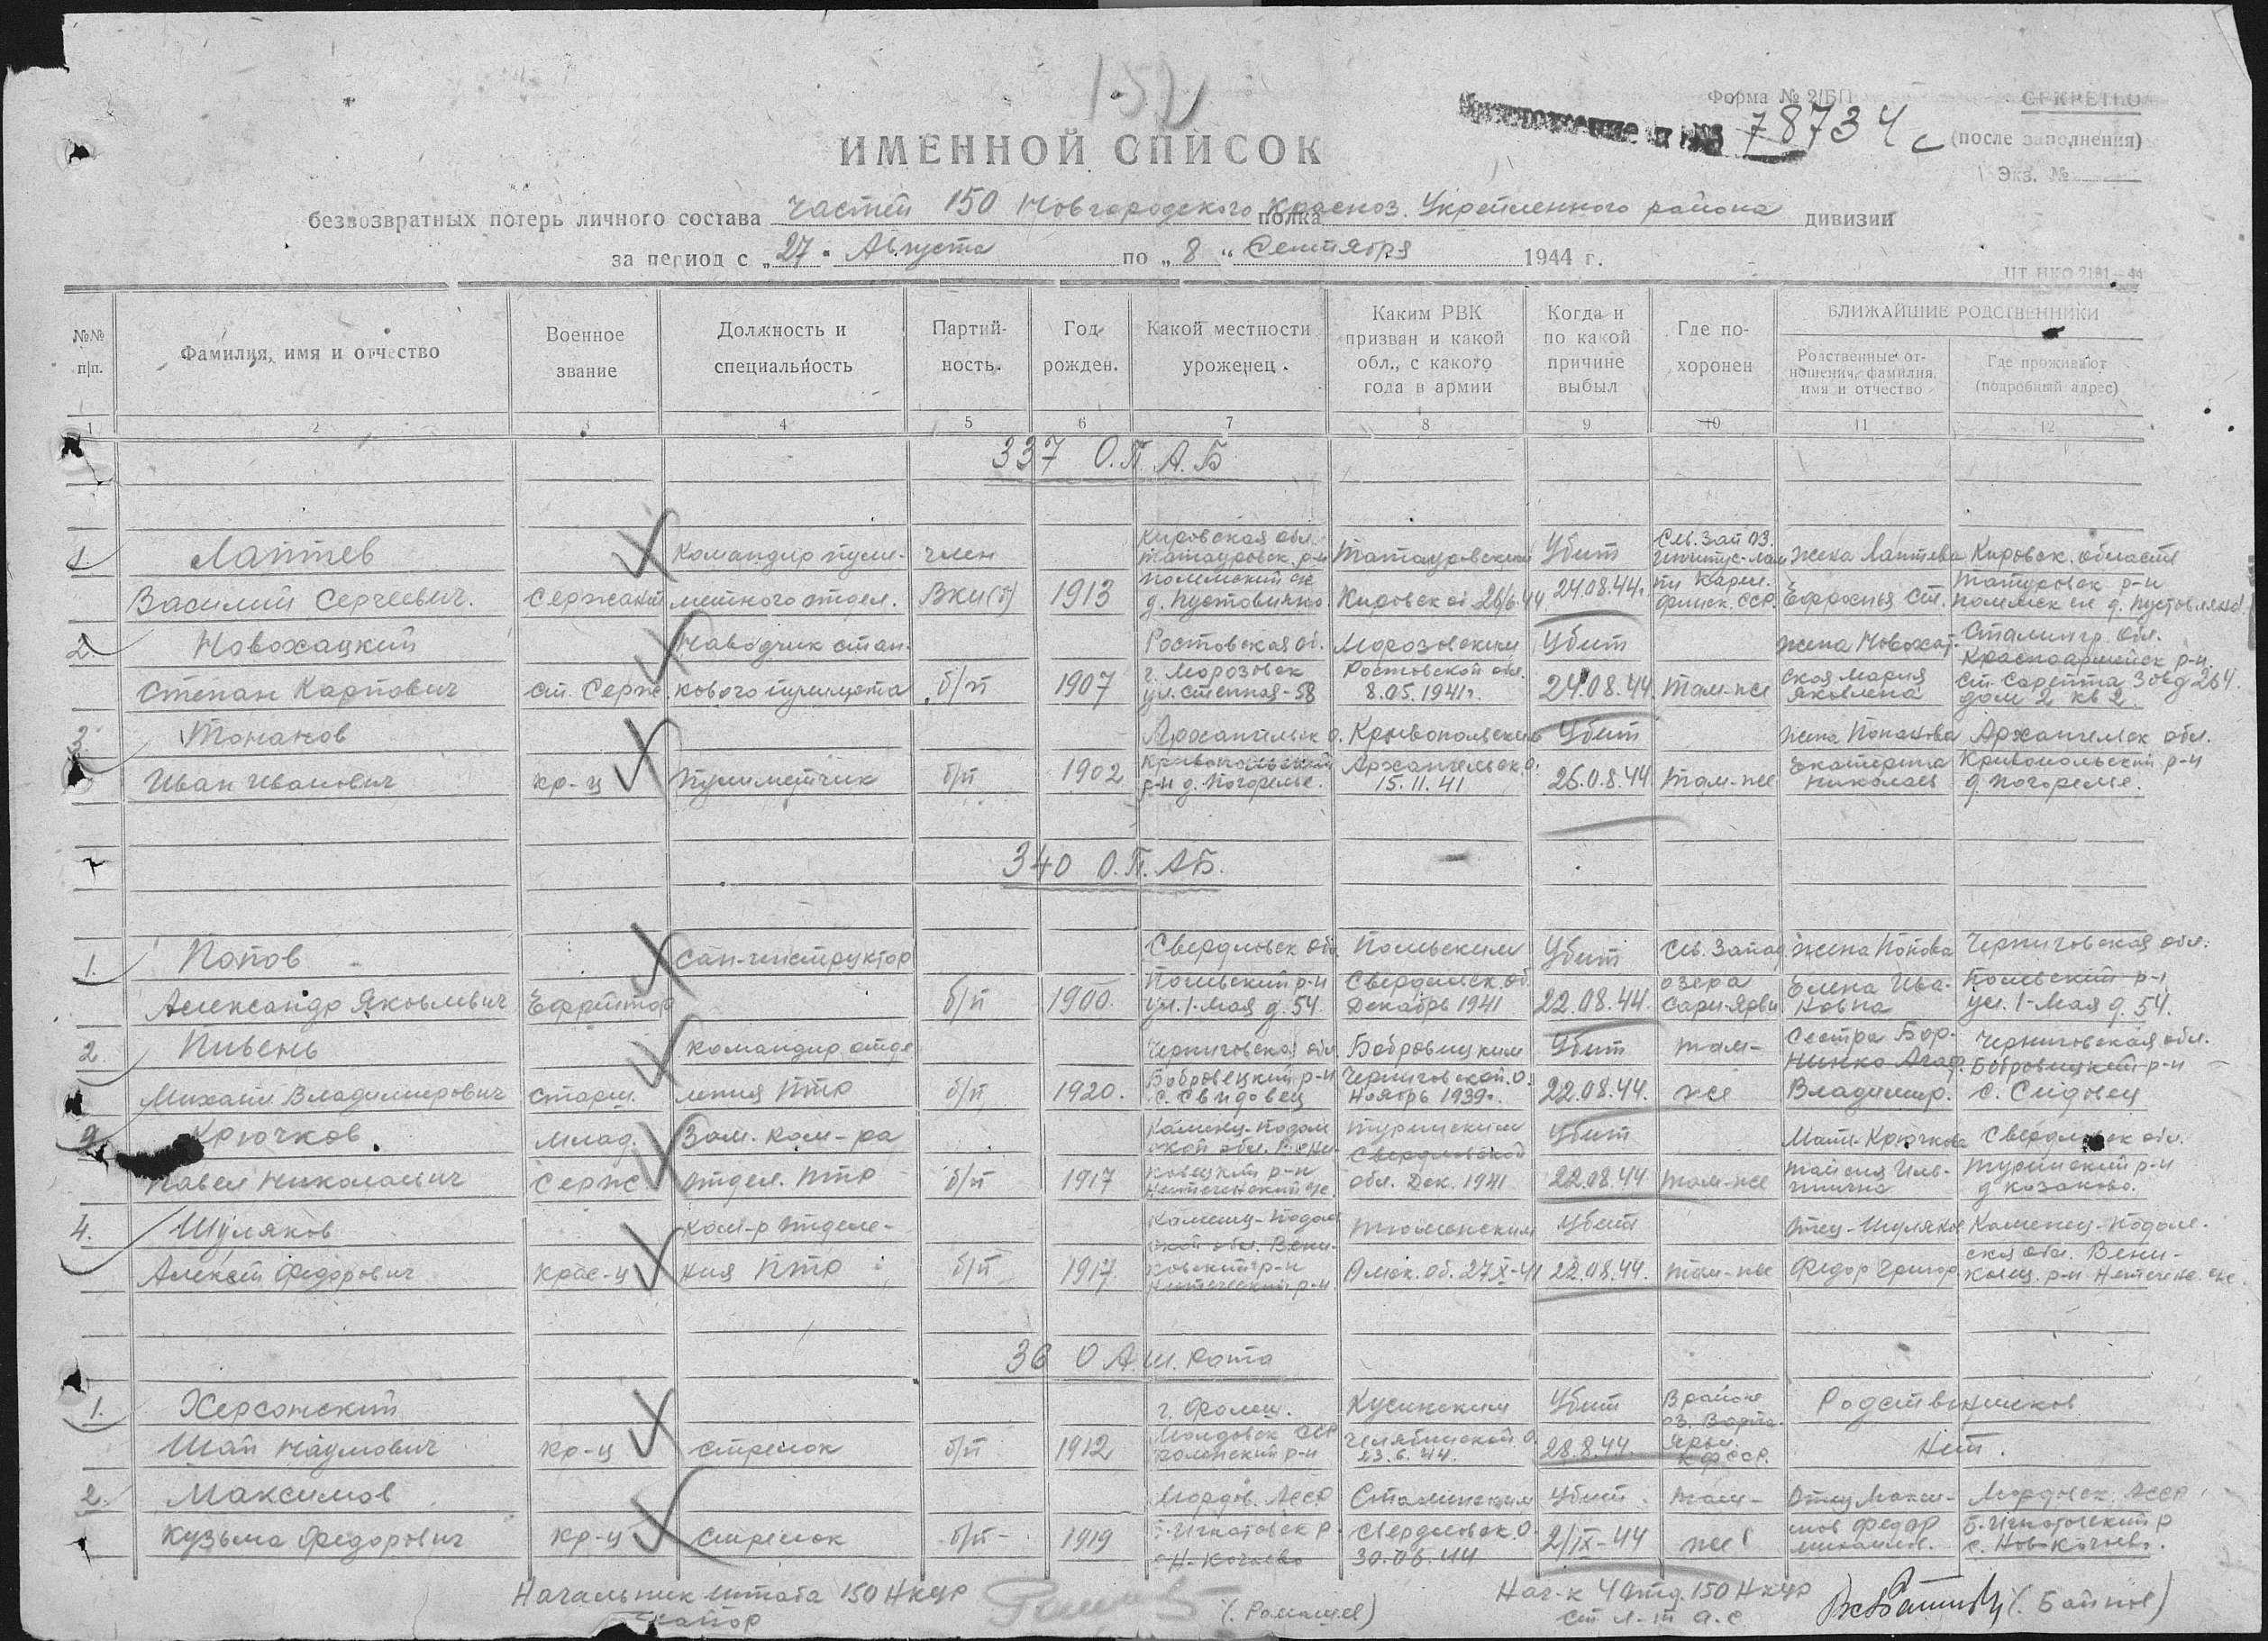 152
Форма № 2/БП
СЕКРЕТНО
Приложение к №
78734с
(после заполнения)
Экз. №
ИМЕННОЙ СПИСОК
безвозвратных потерь личного состава частей 150 Новгородского полка Красноз. Укрепленного района дивизии
за период с „27" Августа по „8" Сентября 1944 г.
ЦТ НКО 2181—44
№№ п|п.
Фамилия, имя и отчество
Военное звание
Должность и специальность
Партий- ность.
Год рожден.
Какой местности уроженец.
Каким РВК призван и какой обл., с какого года в армии
Когда и по какой причине выбыл
Где по- хоронен
БЛИЖАЙШИЕ РОДСТВЕННИКИ
Родственные от- ношения, фамилия, имя и отчество
Где проживают (подробный адрес)
1 2 3 4 5 6 7 8 9 10 11 12
337 О.П.А.Б
1. Лаптев
Василий Сергеевич.
Сержант
Командир пуле-
метного отдел.
член
ВКП(б)
1913
Кировская обл.
Татауровск. р-н
д. Пустовично
Татауровским
Кировской 26/6-44
Убит
24.08.44г.
Сев. Зап оз.
Финск. ССР.
Жена Лаптева
Ефросинья Ст.
Кировск. область
Татауровск р-н
2. Новохацкий
Степан Карпович
ст. Серж.
Наводчик стан-
кового пулемета
б/п
1907
Ростовская об.
г. Морозовск
ул. Степная-58
Морозовским
Ростовской обл.
8.05.1941г.
Убит
24.08.44
Там-же
жена Новохат-
ская Мария
Яковлевна
Сталингр. обл.
Красноармейск р-н.
ст. Сарепта Завод 264.
дом 2 кв 2.
3. Понаков
Иван Иванович
кр-ц
Пулеметчик
б/п
1902
Архангельск о.
р-н д. Погорелье.
Архангельск. о.
15.11.41
Убит
26.0.8.44
там-же
жена Понакова
Екатерина
Николаев
Архангельск обл.
Кривопольский р-н
д. Погорелье.
340 О.П.АБ.
1. Попов
Александр Яковлевич
Ефрейтор
Сан-инструктор
б/п
1900.
Свердловск обл
ул. 1-Мая д. 54
Свердловск. об.
Декабрь 1941
Убит
22.08.44.
Сев. Запад
озера
Сари-Ярви
Жена Попова
Елена Ива-
новна
Черниговская обл.
ул. 1-Мая д. 54.
2. Пивень
Михаил Владимирович
Старш.
Командир отде
ления ПТР
б/п
1920.
Черниговская обл
Бобровецкий р-н
с. Свидовец
Бобровицким
Черниговской. о.
Ноябрь 1939г.
Убит
22.08.44.
там-
же
Сестра Бор-
Владимир.
Черниговская обл.
Бобровицкий р-н
с. Сидовец
3. Крючков
Павел Николаевич
Млад.
Серж.
Зам. Ком-ра
отдел. ПТР
б/п
1917
Каменец-Подол
ской обл.
Туринским
Свердловской
обл. Дек. 1941
Убит
22.08.44
там-же
Мать-Крючкова
Таисия Иль-
инична
Свердловск обл.
Туринский р-н
д. Казаково.
4. Шуляков
Алексей Федорович
Крас-ц
Ком-р отделе-
ния ПТР
б/п
1917
Каменец-Подол
ской обл.
Тюменским
Омск. об. 27.X-41
Убит
22.08.44.
там-же
Отец-Шуляков
Федор Григор
Каменец-Подол.
ская обл.
36 О А.Ш. Рота
1. Херсонский
Шая Наумович
кр-ц
стрелок
б/п
1912
г. Фолеш.
Молдовск ССР
Кусинским
Челябинской о
23.6.44.
Убит
28.8.44.
В районе
КФССР.
Родственников
Нет.
2. Максимов
Кузьма Федорович
кр-ц
стрелок
б/п-
1919
Мордов. АССР
Б.-Игнатовск р.
Н-Качаево
Сталинским
Свердловск. о.
30.06.44
Убит.
2/IX-44
там-
же
Отец Макси-
мов Федор
Мордовск. АССР
Б.-Игнатовский р
с. Нов-Качаево.
Начальник штаба 150 Нкур
Майор
(Ромашев)
Нач-к 4 отд. 150 Нкур
ст л-т а.с.